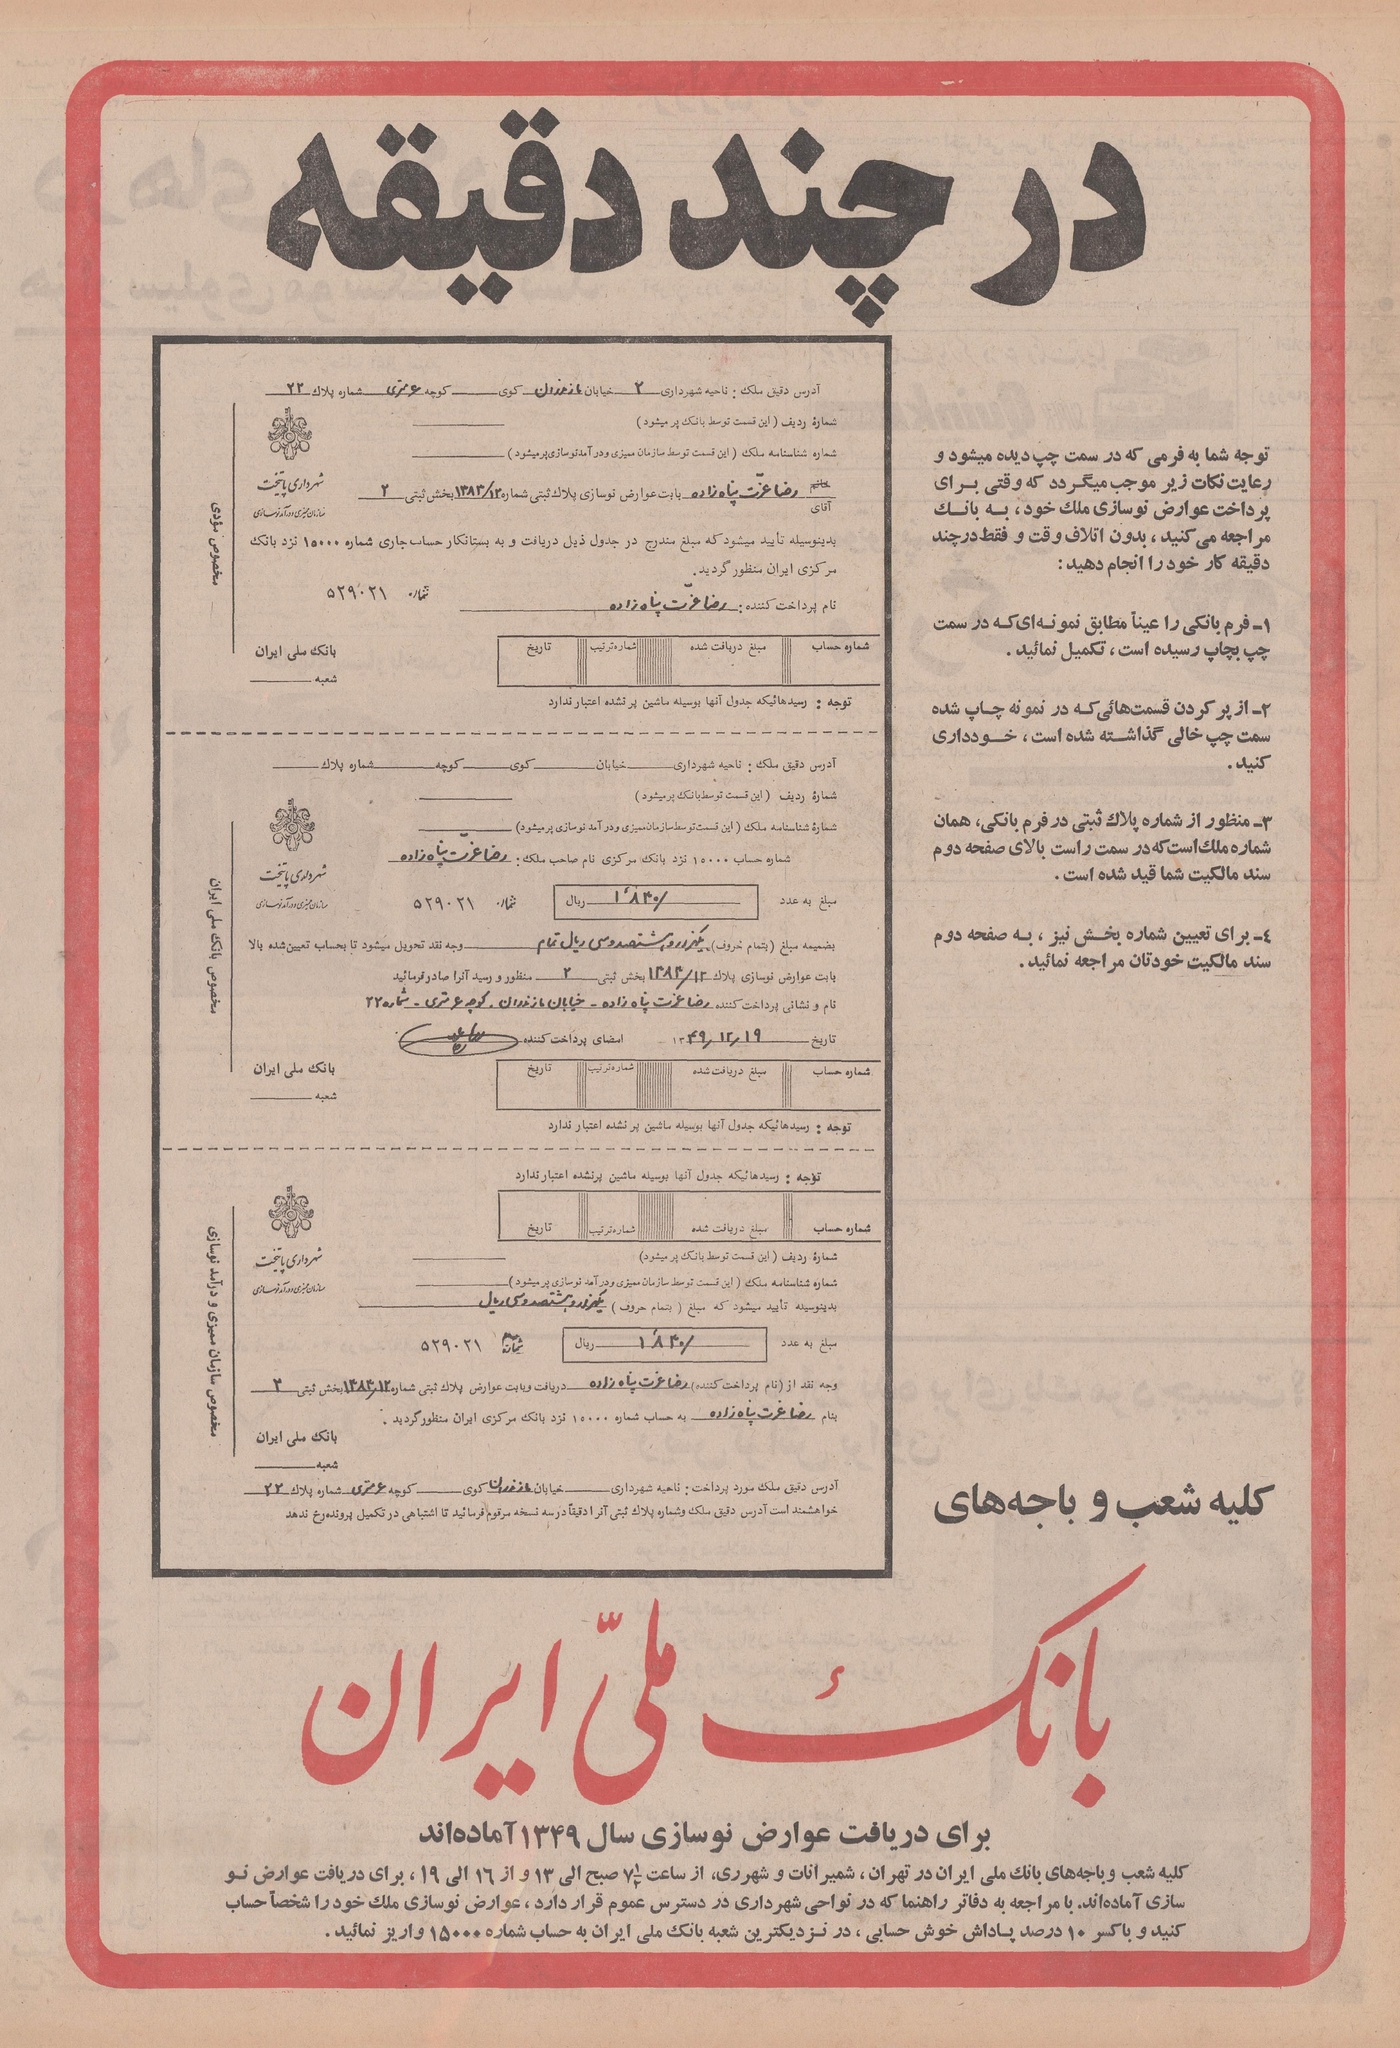 در چند دقیقه
توجه شما به فرمی که در سمت چپ دیده میشود و
رعایت نکات زیر موجب میگردد که وقتی برای
پرداخت عوارض نوسازی ملک خود، به بانک
مراجعه می‌کنید، بدون اتلاف وقت و فقط در چند
دقیقه کار خود را انجام دهید:
۱- فرم بانکی را عیناً مطابق نمونه‌ای که در سمت
چپ بچاپ رسیده است، تکمیل نمائید.
۲- از پر کردن قسمت‌هائی که در نمونه چاپ شده
سمت چپ خالی گذاشته شده است، خودداری
کنید.
۳- منظور از شماره پلاک ثبتی در فرم بانکی، همان
شماره ملک است که در سمت راست بالای صفحه دوم
سند مالکیت شما قید شده است.
۴- برای تعیین شماره بخش نیز، به صفحه دوم
سند مالکیت خودتان مراجعه نمائید.
آدرس دقیق ملک: ناحیه شهرداری ۲ خیابان مازندران کوی کوچه ۶ متری شماره پلاک ۲۲
شمارهٔ ردیف (این قسمت توسط بانک پر میشود)
شماره شناسنامه ملک (این قسمت توسط سازمان ممیزی و درآمد نوسازی پر میشود)
خانم
آقای رضا عزّت پناه زاده بابت عوارض نوسازی پلاک ثبتی شماره ۱۳۸۴/۱۲ بخش ثبتی ۲
بدینوسیله تأیید میشود که مبلغ مندرج در جدول ذیل دریافت و به بستانکار حساب جاری شماره ۱۵۰۰۰ نزد بانک
مرکزی ایران منظور گردید.
شماره ۵۲۹۰۲۱
نام پرداخت کننده: رضا عزّت پناه زاده
شهرداری پایتخت
سازمان ممیزی و درآمد نوسازی
مخصوص مؤدی
شماره حساب مبلغ دریافت شده شماره ترتیب تاریخ
بانک ملی ایران
شعبه
توجه: رسیدهائیکه جدول آنها بوسیله ماشین پر نشده اعتبار ندارد
آدرس دقیق ملک: ناحیه شهرداری خیابان کوی کوچه شماره پلاک
شمارهٔ ردیف (این قسمت توسط بانک پر میشود)
شمارهٔ شناسنامه ملک (این قسمت توسط سازمان ممیزی و درآمد نوسازی پر میشود)
شماره حساب ۱۵۰۰۰ نزد بانک مرکزی نام صاحب ملک: رضا عزّت پناه زاده
شهرداری پایتخت
سازمان ممیزی و درآمد نوسازی
مخصوص بانک ملی ایران
مبلغ به عدد ۱٬۸۳۰/ ریال شماره ۵۲۹۰۲۱
بضمیمه مبلغ (بتمام حروف) یکهزار و هشتصد و سی ریال تمام وجه نقد تحویل میشود تا بحساب تعیین شده بالا
بابت عوارض نوسازی پلاک ۱۳۸۴/۱۲ بخش ثبتی ۲ منظور و رسید آنرا صادر فرمائید
نام و نشانی پرداخت کننده رضا عزت پناه زاده - خیابان مازندران - کوچه ۶ متری - شماره ۲۲
تاریخ ۱۹ر۱۲ر۱۳۴۹ امضای پرداخت کننده
شماره حساب مبلغ دریافت شده شماره ترتیب تاریخ
بانک ملی ایران
شعبه
توجه: رسیدهائیکه جدول آنها بوسیله ماشین پر نشده اعتبار ندارد
توجه: رسیدهائیکه جدول آنها بوسیله ماشین پر نشده اعتبار ندارد
شماره حساب مبلغ دریافت شده شماره ترتیب تاریخ
شهرداری پایتخت
سازمان ممیزی و درآمد نوسازی
مخصوص سازمان ممیزی و درآمد نوسازی
شمارهٔ ردیف (این قسمت توسط بانک پر میشود)
شماره شناسنامه ملک (این قسمت توسط سازمان ممیزی و درآمد نوسازی پر میشود)
بدینوسیله تأیید میشود که مبلغ (بتمام حروف) یکهزار و هشتصد و سی ریال
مبلغ به عدد ۱٬۸۳۰/ ریال شماره ۵۲۹۰۲۱
وجه نقد از (نام پرداخت کننده) رضا عزت پناه زاده دریافت و بابت عوارض پلاک ثبتی شماره ۱۳۸۴/۱۲ بخش ثبتی ۲
بنام رضا عزت پناه زاده به حساب شماره ۱۵۰۰۰ نزد بانک مرکزی ایران منظور گردید.
بانک ملی ایران
شعبه
آدرس دقیق ملک مورد پرداخت: ناحیه شهرداری خیابان مازندران کوی کوچه ۶ متری شماره پلاک ۲۲
خواهشمند است آدرس دقیق ملک و شماره پلاک ثبتی آنرا دقیقاً در سه نسخه مرقوم فرمائید تا اشتباهی در تکمیل پرونده رخ ندهد
کلیه شعب و باجه‌های
بانک ملّی ایران
برای دریافت عوارض نوسازی سال ۱۳۴۹ آماده‌اند
کلیه شعب و باجه‌های بانک ملی ایران در تهران، شمیرانات و شهر ری، از ساعت ۷۱/۲ صبح الی ۱۳ و از ۱۶ الی ۱۹، برای دریافت عوارض نو
سازی آماده‌اند. با مراجعه به دفاتر راهنما که در نواحی شهرداری در دسترس عموم قرار دارد، عوارض نوسازی ملک خود را شخصاً حساب
کنید و با کسر ۱۰ درصد پاداش خوش حسابی، در نزدیکترین شعبه بانک ملی ایران به حساب شماره ۱۵۰۰۰ واریز نمائید.